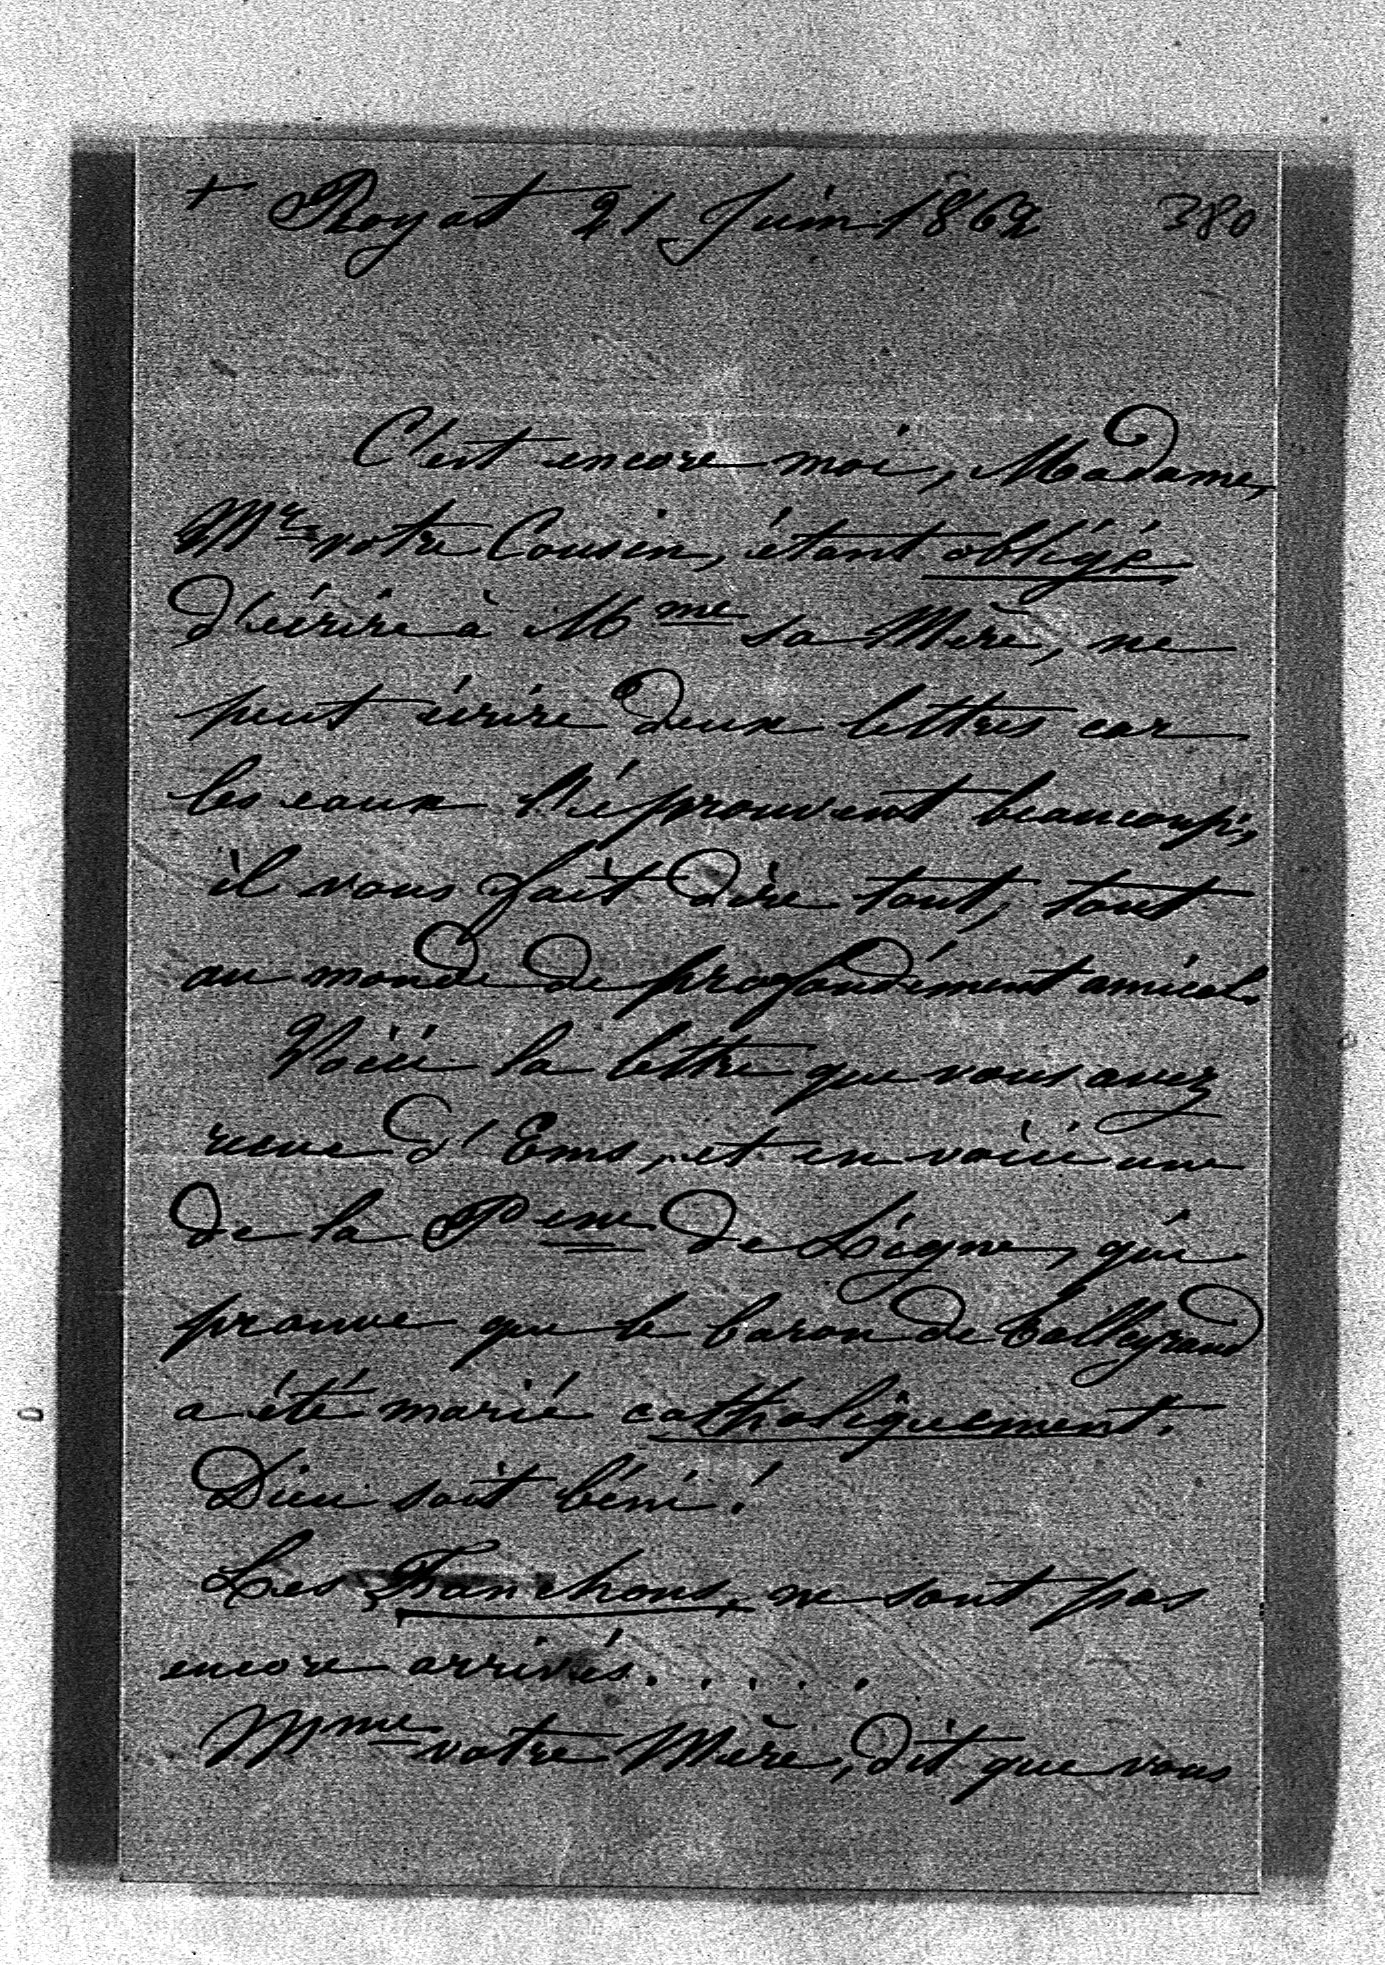 + Royat 21 Juin 1862 380
C'est encore moi, Madame,
Mr votre Cousin, étant obligé
d'écrire à Mme sa Mère, ne
peut écrire deux lettres car
les eaux l'éprouvent beaucoup;
il vous fait dire tout, tout
au monde de profondément amical.
Voici la lettre que vous avez
reçue d'Ems, et en voici une
de la Pcesse de Ligne, qui
prouve que le baron de Talleyrand
a été marié catholiquement.
Dieu soit béni!
Les Franchons, ne sont pas
encore arrivés.....
Mme votre Mère, dit que vous